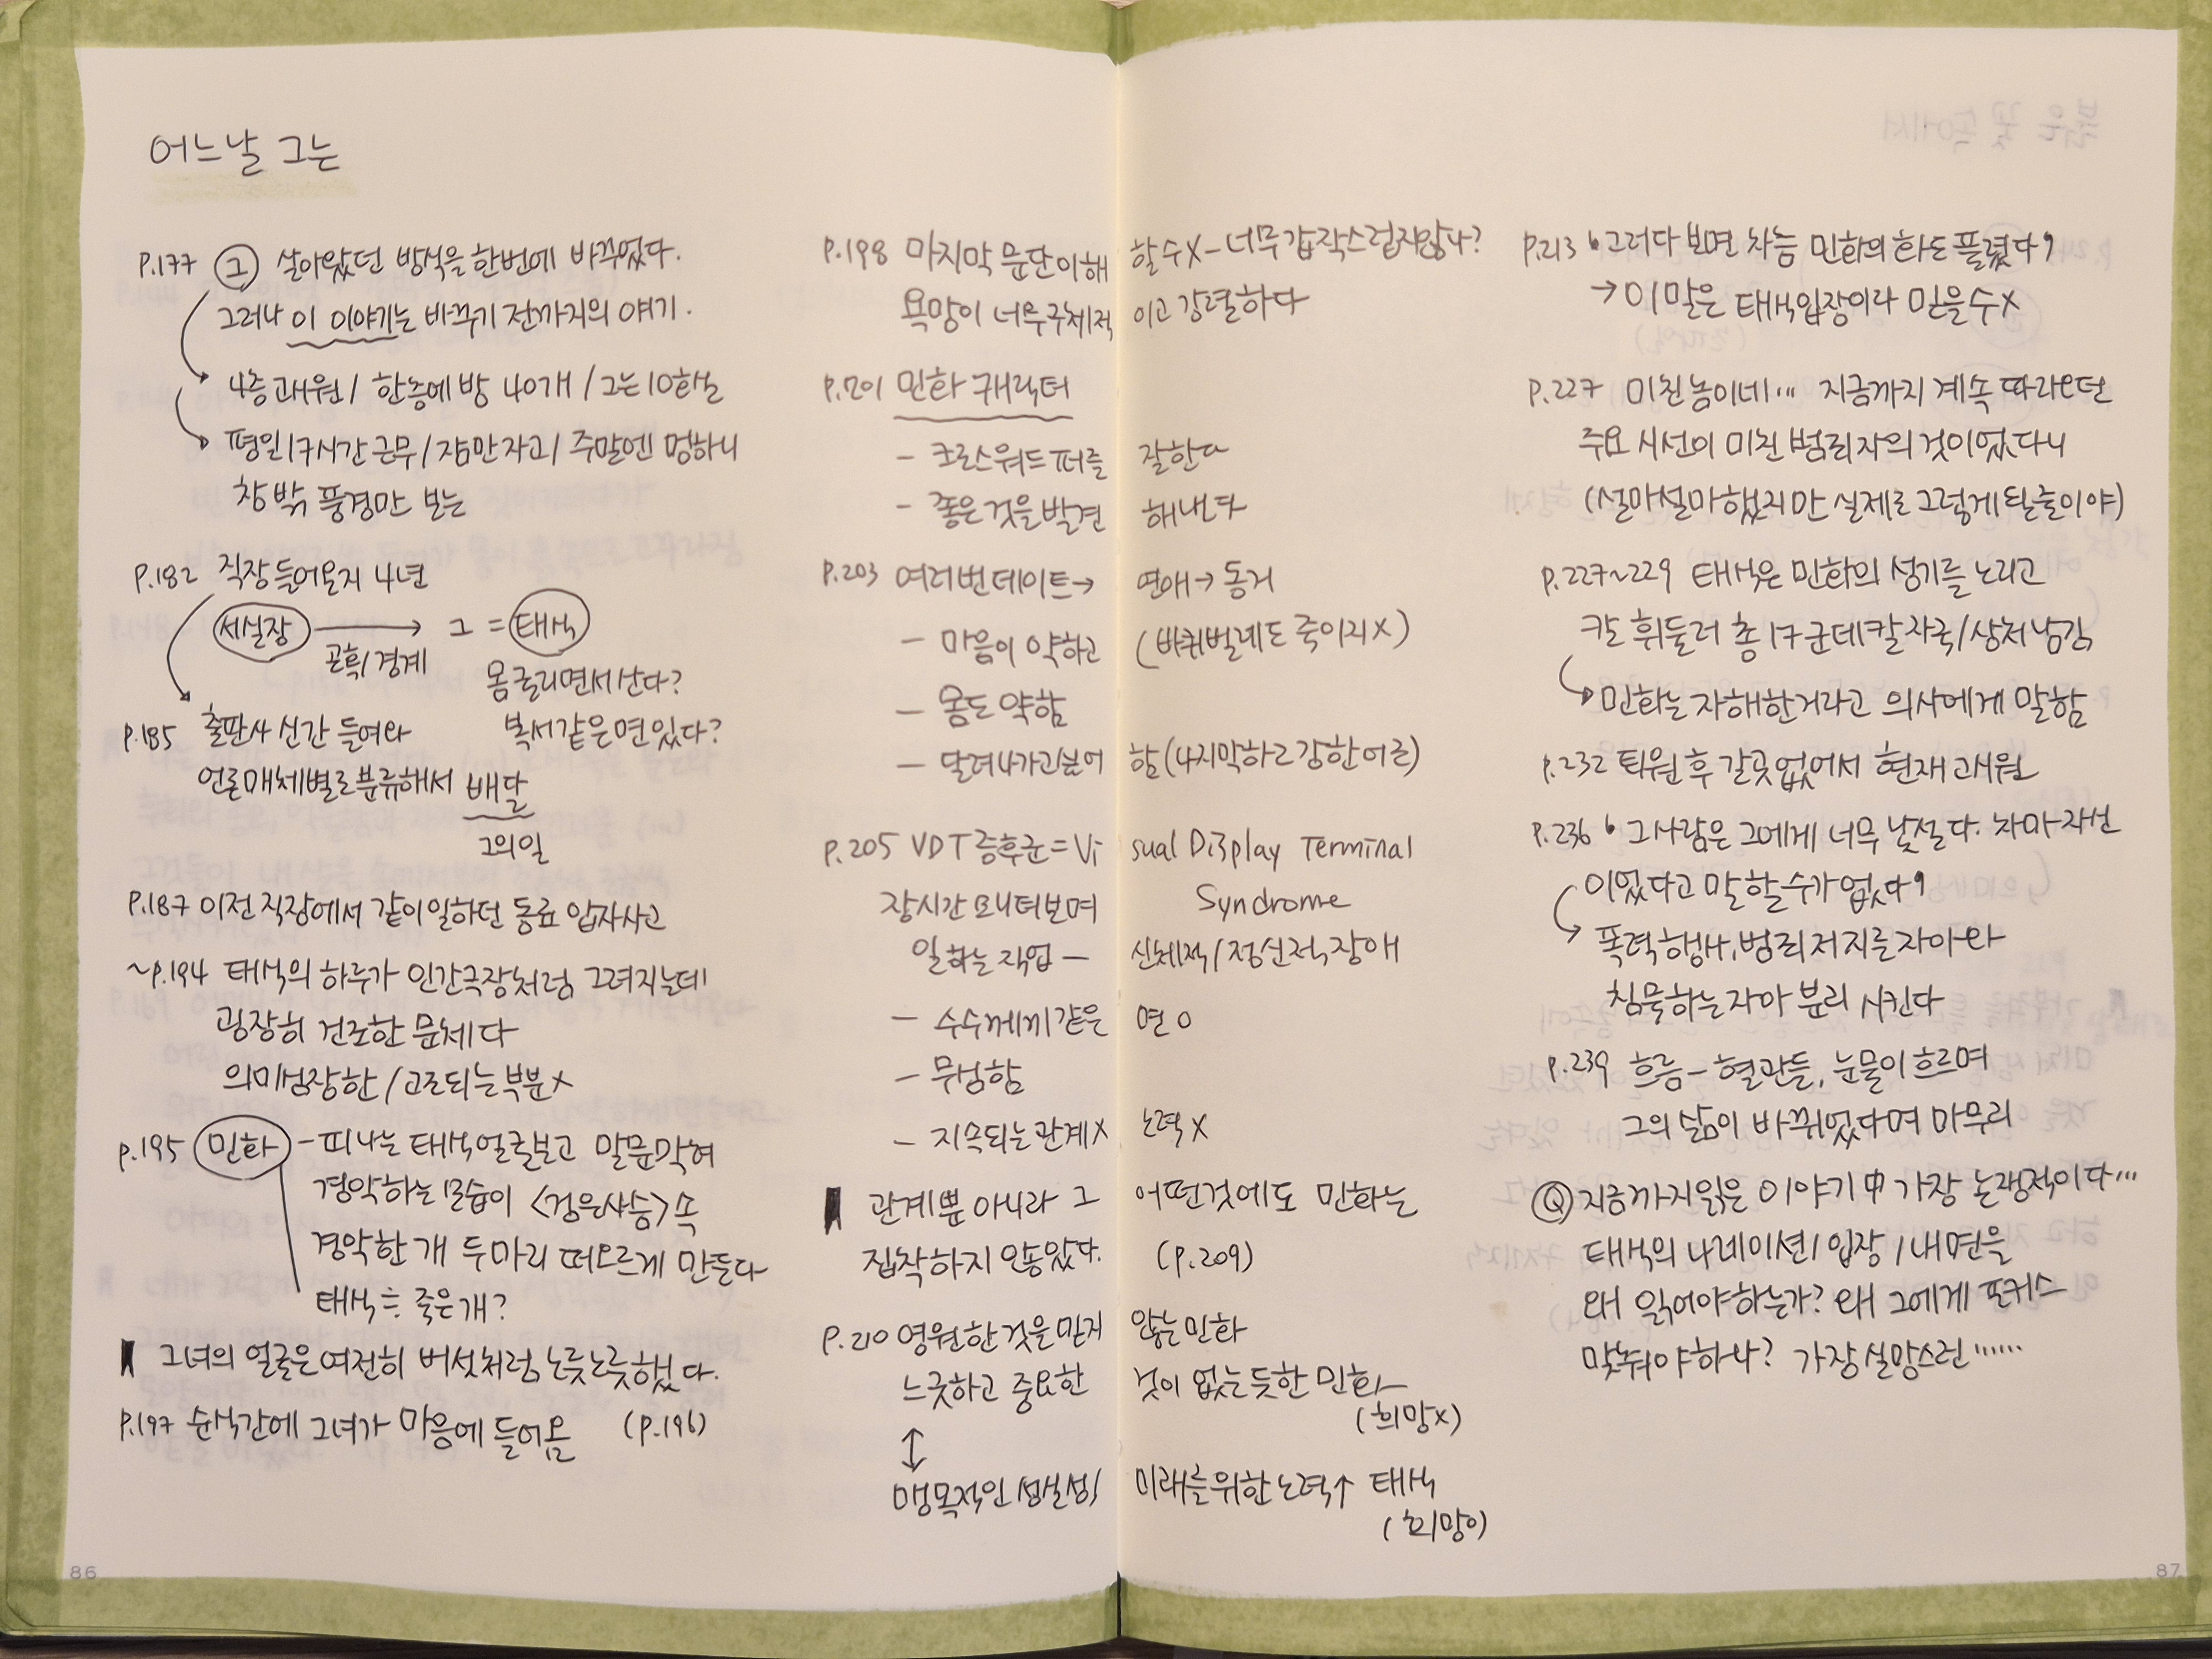 어느날 그는
P.177 그 살아왔던 방식을 한번에 바꾸었다.
그러나 이 이야기는 바꾸기 전까지의 얘기.
4층 고시원 / 한층에 방 40개 / 그는 10호실
평일 17시간 근무 / 잠만 자고 / 주말엔 멍하니
창 밖 풍경만 보는
P.182 직장 들어온지 4년
세실장 → 그 = 태식
곤혹/경계
몸 굴리면서 산다?
P.185 출판사 신간 들여와
복서같은 면 있다?
언론매체별로 분류해서 배달
그의 일
P.187 이전 직장에서 같이 일하던 동료 압사사고
~P.194 태식의 하루가 인간극장처럼 그려지는데
굉장히 건조한 문체다
의미심장한 / 고조되는 부분 X
P.195 민화 - 피나는 태식 얼굴보고 말문막혀
경악하는 모습이 <검은사슴> 속
경악한 개 두마리 떠오르게 만든다
태식 ≒ 죽은개?
그녀의 얼굴은 여전히 버섯처럼 노릇노릇했다.
(P.196)
P.197 순식간에 그녀가 마음에 들어옴
P.198 마지막 문단 이해 할 수 X - 너무 갑작스럽지않나?
욕망이 너무 구체적 이고 강렬하다
P.201 민화 캐릭터
- 크로스워드 퍼즐 잘한다
- 좋은 것을 발견 해낸다
P.203 여러번 데이트 → 연애 → 동거
- 마음이 약하고 (바퀴벌레도 죽이지 X)
- 몸도 약함
- 달려나가고싶어 함 (나지막하고 강한 어조)
P.205 VDT 증후군 = Vi sual Display Terminal
Syndrome
장시간 모니터보며
일하는 직업 - 신체적/정신적 장애
- 수수께끼 같은 면 O
- 무심함
- 지속되는 관계 X 노력 X
관계뿐 아니라 그 어떤것에도 민화는
집착하지 않았다. (P.209)
P.210 영원한 것을 믿지 않는 민화
느긋하고 중요한 것이 없는 듯한 민화
(희망X)
↕
맹목적인 성실성/ 미래를 위한 노력↑ 태식
(희망O)
P.213 '그러다 보면 차츰 민화의 화도 풀렸다'
→ 이 말은 태식 입장이라 믿을 수 X
P.227 미친 놈이네… 지금까지 계속 따라오던
주요 시선이 미친 범죄자의 것이었다니
(설마설마 했지만 실제로 그렇게 될 줄이야)
P.227~229 태식은 민화의 성기를 노리고
칼 휘둘러 총 17군데 칼 자국/상처 남김
민화는 자해한거라고 의사에게 말함
P.232 퇴원 후 갈곳 없어서 현재 고시원
P.236 '그 사람은 그에게 너무 낯설다. 차마 자신
이었다고 말할 수가 없다'
폭력행사, 범죄저지른 자아와
침묵하는 자아 분리 시킨다
P.239 흐름 - 혈관들, 눈물이 흐르며
그의 삶이 바뀌었다며 마무리
Q 지금까지 읽은 이야기 中 가장 논쟁적이다…
태식의 나레이션/입장/내면을
왜 읽어야하는가? 왜 그에게 포커스
맞춰야 하나? 가장 실망스런……
86
87